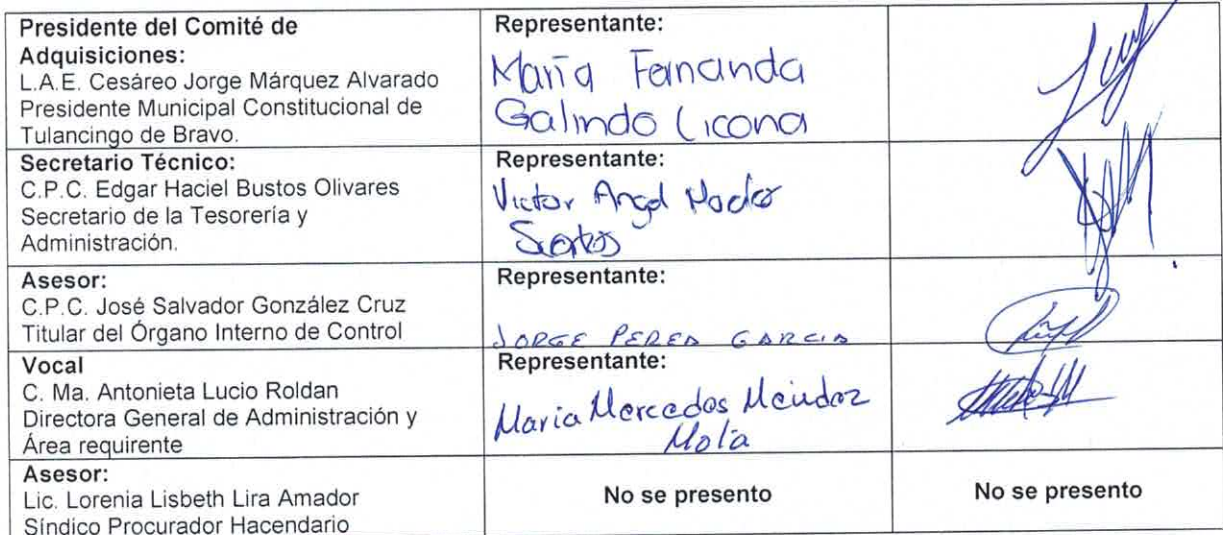 Presidente del Comité de
Adquisiciones:
L.A.E. Cesáreo Jorge Márquez Alvarado
Presidente Municipal Constitucional de
Tulancingo de Bravo.
Representante:
María Fernanda
Galindo Licona
Secretario Técnico:
C.P.C. Edgar Haciel Bustos Olivares
Secretario de la Tesorería y
Administración.
Representante:
Victor Angel
Asesor:
C.P.C. José Salvador González Cruz
Titular del Órgano Interno de Control
Representante:
JORGE PEREA GARCIA
Vocal
C. Ma. Antonieta Lucio Roldan
Directora General de Administración y
Área requirente
Representante:
Maria Mercedes
Asesor:
Lic. Lorenia Lisbeth Lira Amador
Síndico Procurador Hacendario
No se presento
No se presento